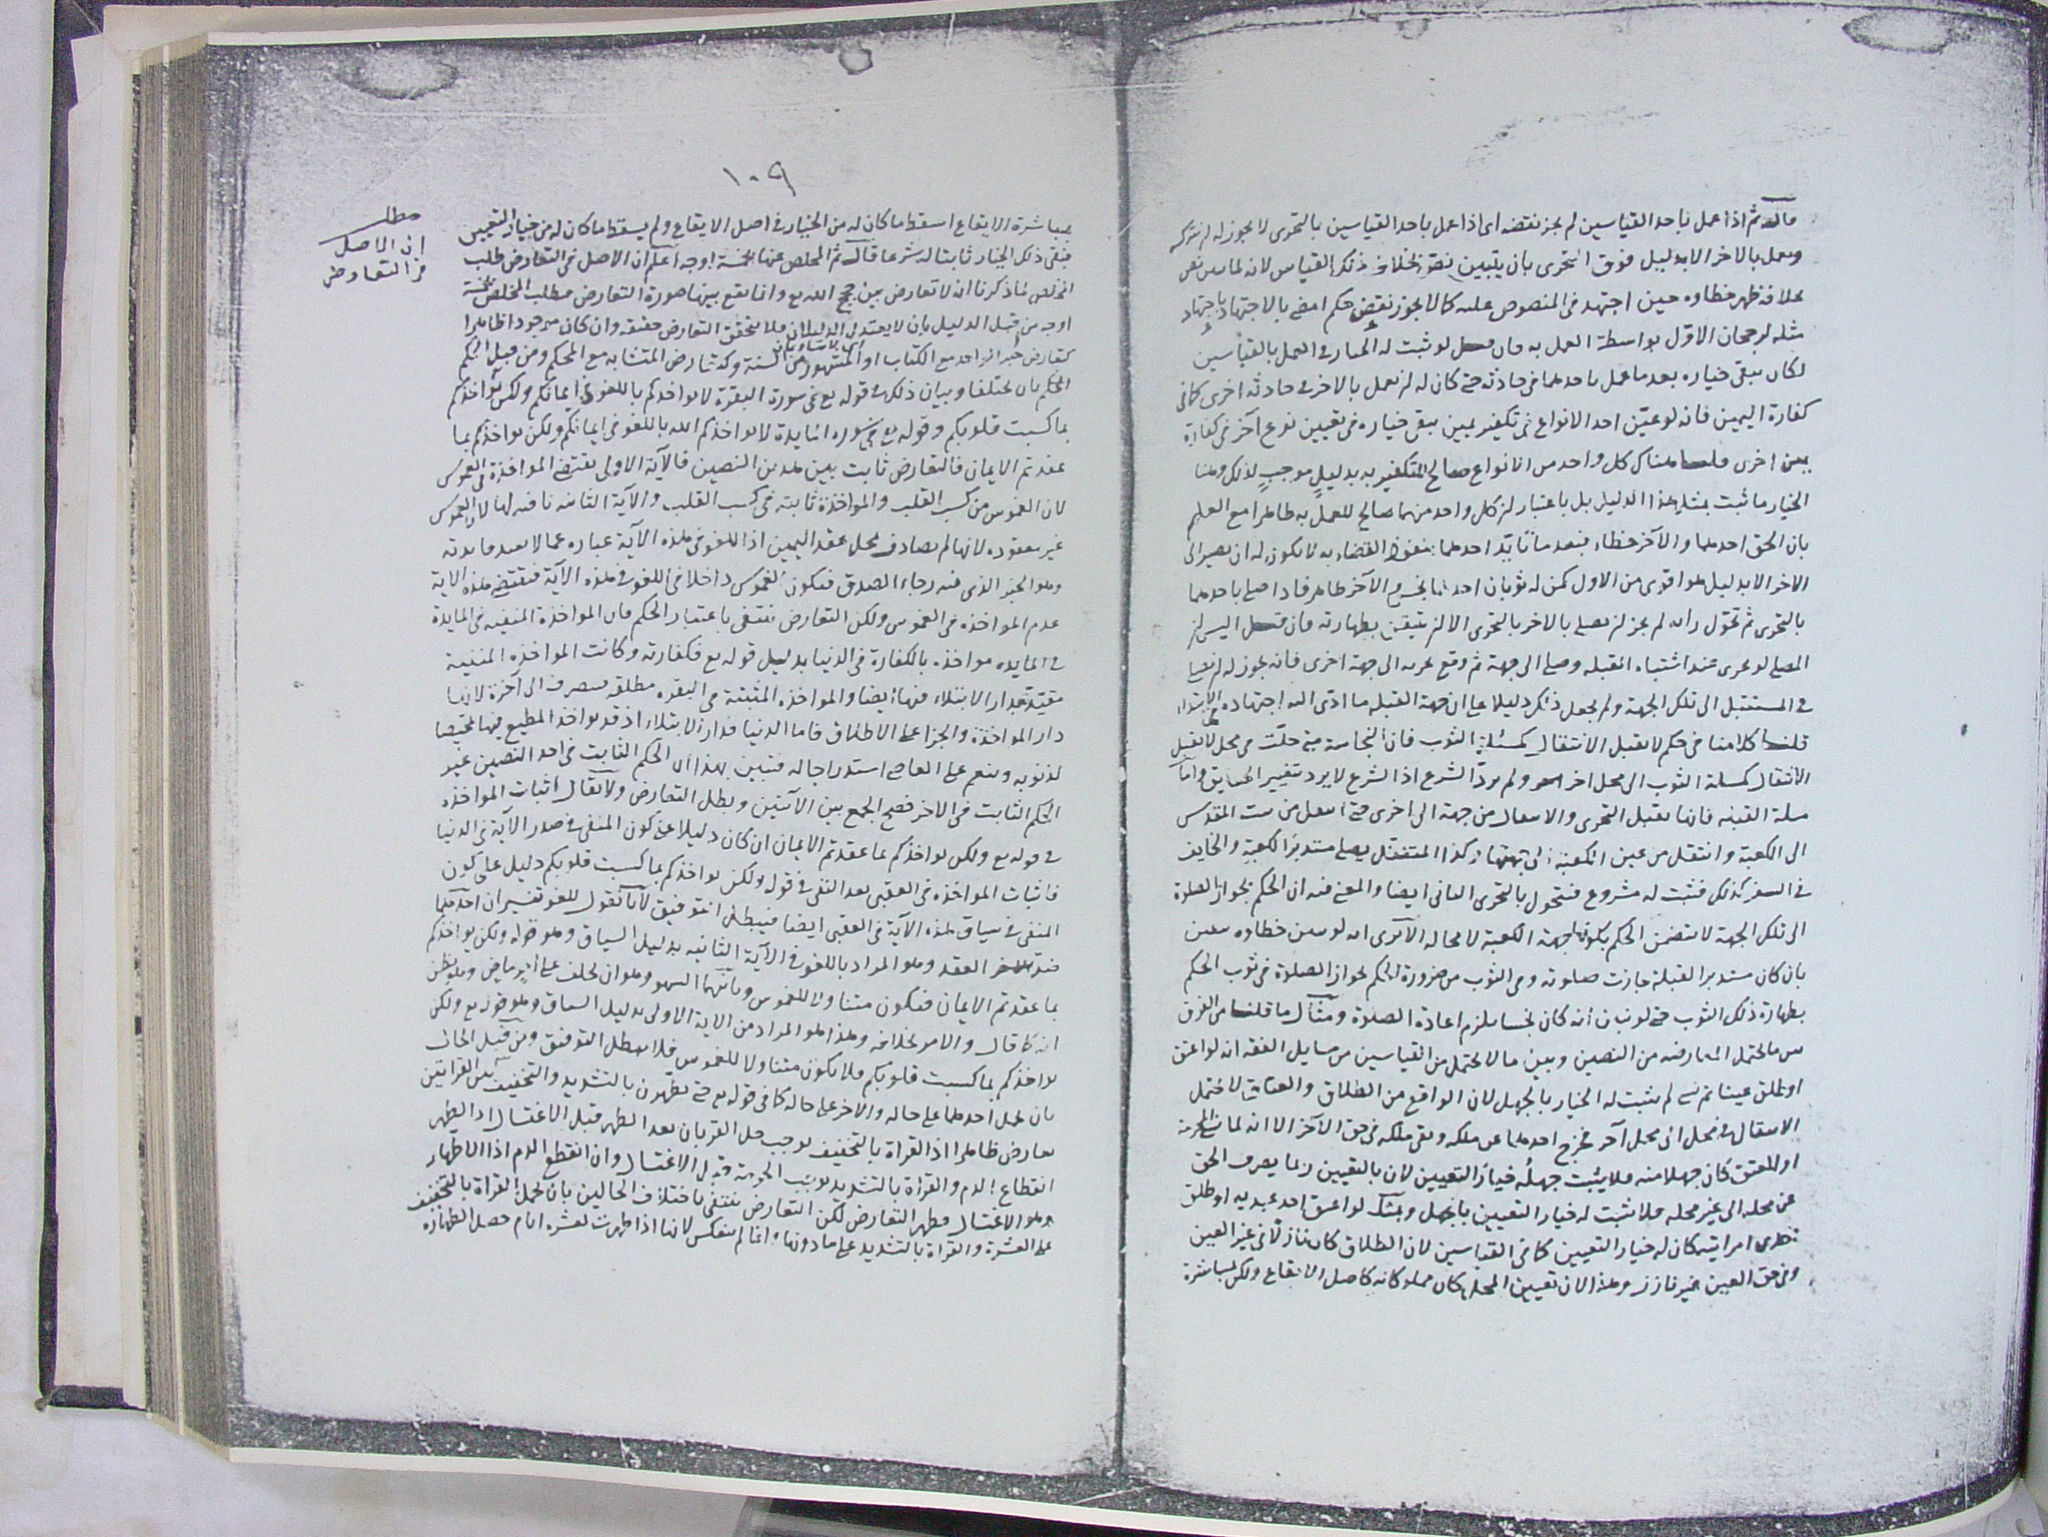 قال ثم اذا عمل باحد القياسين لم يجز نقضه اى اذا عمل باحد القياسين بالتحرى لا يجوز له ان يتركه
ويعمل بالاخر الا بدليل فوق التحرى بان يتبين نص بخلاف ذلك القياس لانه لما تبين نص
بخلافه ظهر خطاؤه حين اجتهد فى المنصوص عليه كما لا يجوز نقض حكم امضى بالاجتهاد باجتهاد
مثله لرجحان الاول بواسطة العمل به فان قيل لو ثبت له الخيار فى العمل بالقياسين
لكان يبقى خياره بعد ما عمل باحدهما فى حادثة حتى كان له ان يعمل بالاخر فى حادثة اخرى كما فى
كفارة اليمين فانه لو عيّن احد الانواع فى تكفير يمين يبقى خياره فى تعيين نوع آخر فى كفارة
يمين اخرى قلنا هناك كل واحد من الانواع صالح للتكفير به بدليل موجب لذلك وهنا
الخيار ما ثبت بمثل هذا الدليل بل باعتبار ان كل واحد منهما صالح للعمل به ظاهرا مع العلم
بان الحق احدهما والآخر خطاء فبعد ما تايّد احدهما بنفوذ القضاء به لا يكون له ان يصير الى
الاخر الا بدليل هو اقوى من الاول كمن له ثوبان احدهما نجس والآخر طاهر فاذا صلى باحدهما
بالتحرى ثم تحوّل رايه لم يجز ان يصلى بالاخر بالتحرى الا ان يتيقن بطهارته فان قيل اليس ان
المصلى لو تحرى عند اشتباه القبلة وصلى الى جهة ثم وقع تحريه الى جهة اخرى فانه يجوز له ان يصلى
فى المستقبل الى تلك الجهة ولم يجعل ذلك دليلا على ان جهة القبلة ما ادى اليه اجتهاده فى الابتداء
قلنا كلامنا فى حكم لا يقبل الانتقال كمسئلة الثوب فان النجاسة متى حلّت فى محل لا يقبل
الانتقال كمسلة الثوب الى محل اخر ولم يردّ الشرع اذ الشرع لا يرد بتغيير الحقايق واما
مسلة القبلة فانها يقبل التحرى والانتقال من جهة الى اخرى حتى انتقل من بيت المقدس
الى الكعبة وانتقل من عين الكعبة الى جهتها وكذا المتنفل يصلى مستدبر الكعبة والخايف
فى السفر كذلك فثبت له مشروع فتحول بالتحرى الثانى ايضا والمعنى فيه ان الحكم بجواز الصلوة
الى تلك الجهة لا يتضمن الحكم بكونها جهة الكعبة لا محالة الا ترى انه لو تبين خطاؤه بيقين
بان كان مستدبر القبلة جازت صلوته وفى الثوب من ضرورة الحكم بجواز الصلوة فى ثوب الحكم
بطهارة ذلك الثوب حتى لو تبين انه كان نجسا يلزم اعادة الصلوة ومثال ما قلنا من الفرق
بين ما يحتمل المعارضة من النصين وبين ما لا يحتمل من القياسين من مسايل الفقه انه لو اعتق
او طلق عينا ثم نسى لم يثبت له الخيار بالجهل لان الواقع من الطلاق والعتاق لا يحتمل
الانتقال من محل الى محل آخر فخرج احدهما عن ملكه وبقى ملكه فى حق الآخر الا انه لما نسى المحرمة
او المعتق كان جهلا منه فلا يثبت جهله خيار التعيين لان بالتعيين ربما يصرف الحق
عن محله الى غير محله فلا يثبت له خيار التعيين بالجهل وبمثله لو اعتق احد عبديه او طلق
احدى امراتيه كان له خيار التعيين كما فى القياسين لان الطلاق كان نازلا فى غير العين
وفى حق العين غير نازل وهذا لان تعيين المحل كان مملوكا له كاصل الايقاع ولكن لمباشرة
١٠٩
بمباشرة الايقاع اسقط ما كان له من الخيار فى اصل الايقاع ولم يسقط ما كان له من خيار التعيين
فبقى ذلك الخيار ثابتا له شرعا قال ثم المخلص عنها بخمسة اوجه اعلم ان الاصل فى التعارض طلب
المخلص لما ذكرنا انه لا تعارض بين حجج الله تع وانما يقع بينها صورة التعارض فطلب المخلص بخمسة
اوجه من قبل الدليل بان لا يعتدل الدليلان فلا يتحقق التعارض حقيقة وان كان موجودا ظاهرا
اى يتساويان
كتعارض خبر الواحد مع الكتاب او المشهور من السنة وكتعارض المتشابه مع المحكم ومن قبل الحكم
الحكم بان يختلفا وبيان ذلك فى قوله تع فى سورة البقرة لا يواخذكم باللغو فى ايمانكم ولكن يواخذكم
بما كسبت قلوبكم وقوله تع فى سورة المايدة لا يواخذكم الله باللغو فى ايمانكم ولكن يواخذكم بما
عقدتم الايمان فالتعارض ثابت بين هذين النصين فالآية الاولى يقتضى المواخذة فى الغموس
لان الغموس من كسب القلب والمواخذة ثابتة فى كسب القلب والآية الثانية نافية لها لان الغموس
غير معقودة لانها لم يصادف محل عقد اليمين اذ اللغو فى هذه الآية عبارة عما لا يفيد فايدته
وهو الخبر الذى فيه رجاء الصدق فيكون الغموس داخلا فى اللغو فى هذه الآية فيقتضى هذه الاية
عدم المواخذة فى الغموس ولكن التعارض ينتفى باعتبار الحكم فان المواخذة المنفية فى المايدة
فى المايدة مواخذة بالكفارة فى الدنيا بدليل قوله تع فكفارته وكانت المواخذة المنفية
مقيدة بدار الابتلاء فيها ايضا والمواخذة المثبتة فى البقرة مطلقة فيصرف الى آخرة لانها
دار المواخذة والجزا على الاطلاق فاما الدنيا فدار الابتلاء اذ قد يواخذ المطيع فيها تمحيصا
لذنوبه وينعم على العاصى استدراجا له فتبين بهذا ان الحكم الثابت فى احد النصين غير
الحكم الثابت فى الاخر فصح الجمع بين الآيتين وبطل التعارض ولا يقال اثبات المواخذة
فى قوله تع ولكن يواخذكم بما عقدتم الايمان ان كان دليلا على كون المنفى فى صدر الآية فى الدنيا
فاثبات المواخذة فى العقبى بعد النفى فى قوله ولكن يواخذكم بما كسبت قلوبكم دليل على كون
المنفى فى سياق هذه الآية فى العقبى ايضا فيبطل التوفيق لانا نقول للغو تفسيران احدهما
ضد العقد وهو المراد باللغو فى الآية الثانية بدليل السياق وهو قوله ولكن يواخذكم
بما عقدتم الايمان فيكون متناولا للغموس وثانيهما السهو وهو ان يحلف على امر ماض وهو يظن
انه كما قال والامر بخلافه وهذا هو المراد من الاية الاولى بدليل السياق وهو قوله تع ولكن
يواخذكم بما كسبت قلوبكم فلا يكون متناولا للغموس فلا يبطل التوفيق ومن قبل الحال
بان يحمل احدهما على حالة والاخر على حالة كما فى قوله تع حتى يطهرن بالتشديد والتخفيف بين القراتين
تعارض ظاهرا اذ القراة بالتخفيف يوجب حل القربان بعد الطهر قبل الاغتسال اذ الطهر
انقطاع الدم والقراة بالتشديد يوجب الحرمة قبل الاغتسال وان انقطع الدم اذ الاطهار
هو الاغتسال فظهر التعارض لكن التعارض ينتفى باختلاف الحالين بان يحمل القراة بالتخفيف
على العشرة والقراة بالتشديد على ما دونها وانما لم ينعكس لانها اذا طهرت لعشرة ايام حصل الطهارة
مطلب
ان الاصل
فى التعارض